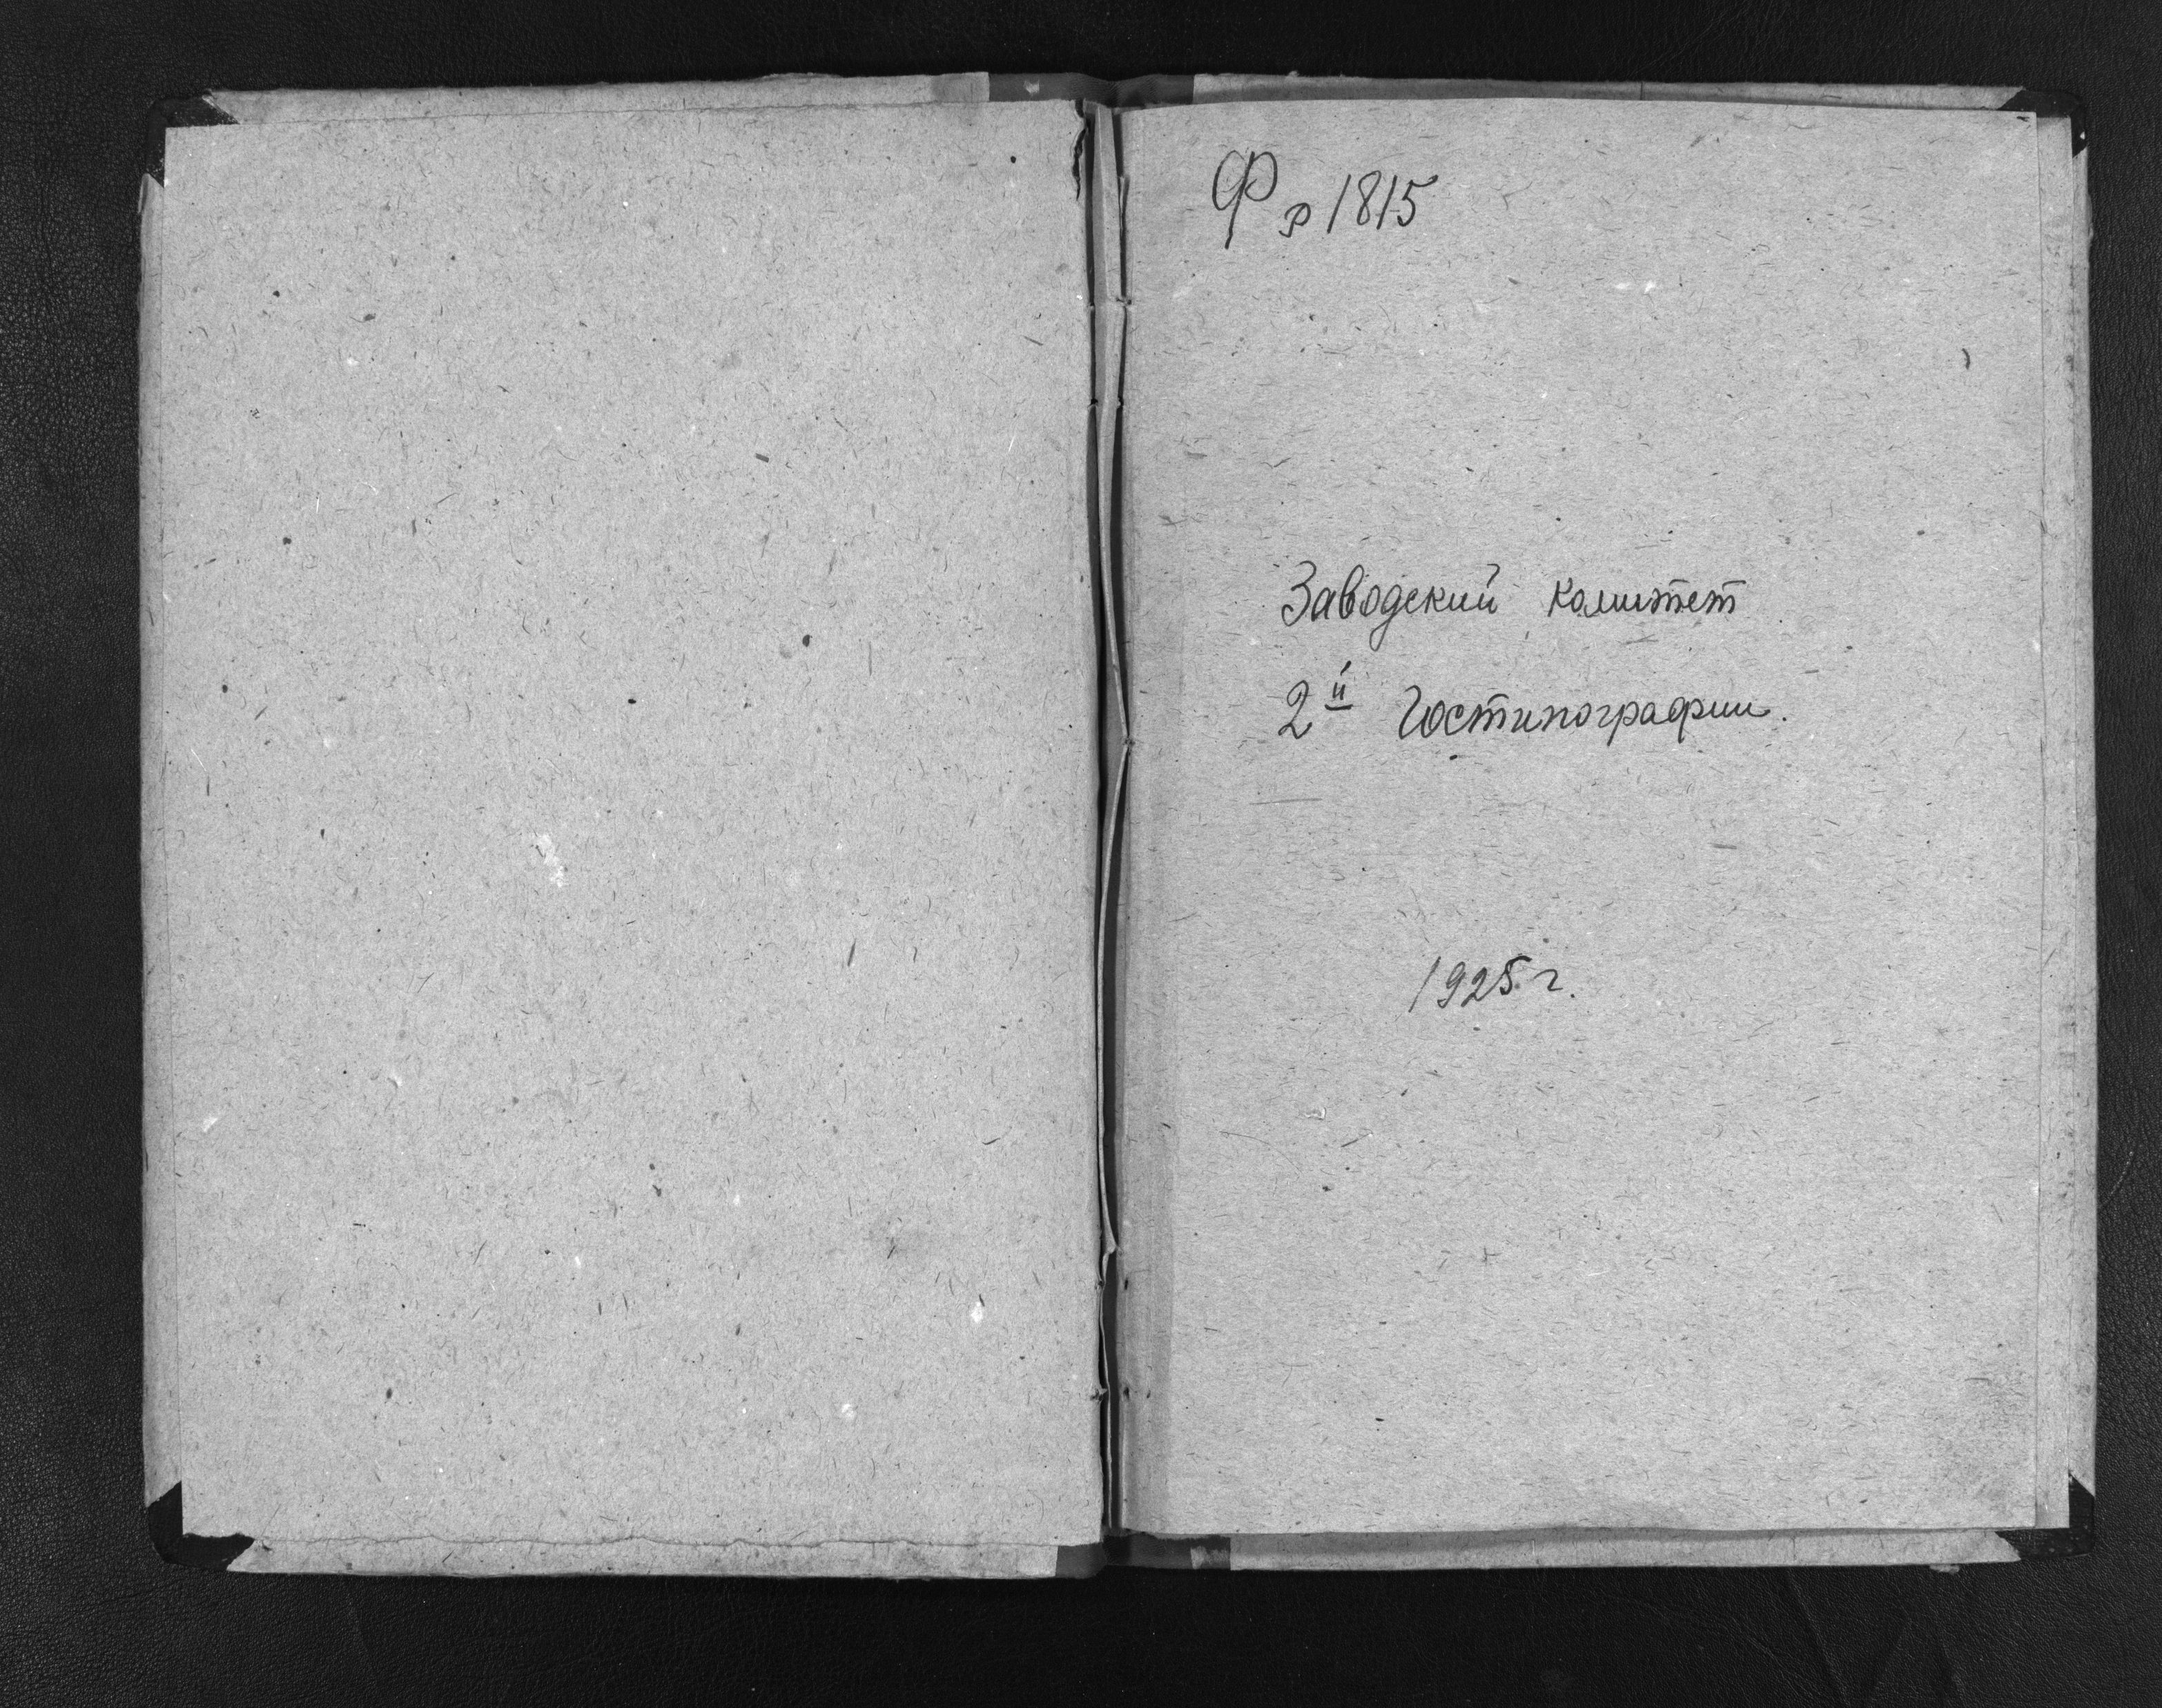 Ф р 1815
Заводский комитет
2й Гостипографии.
1925 г.